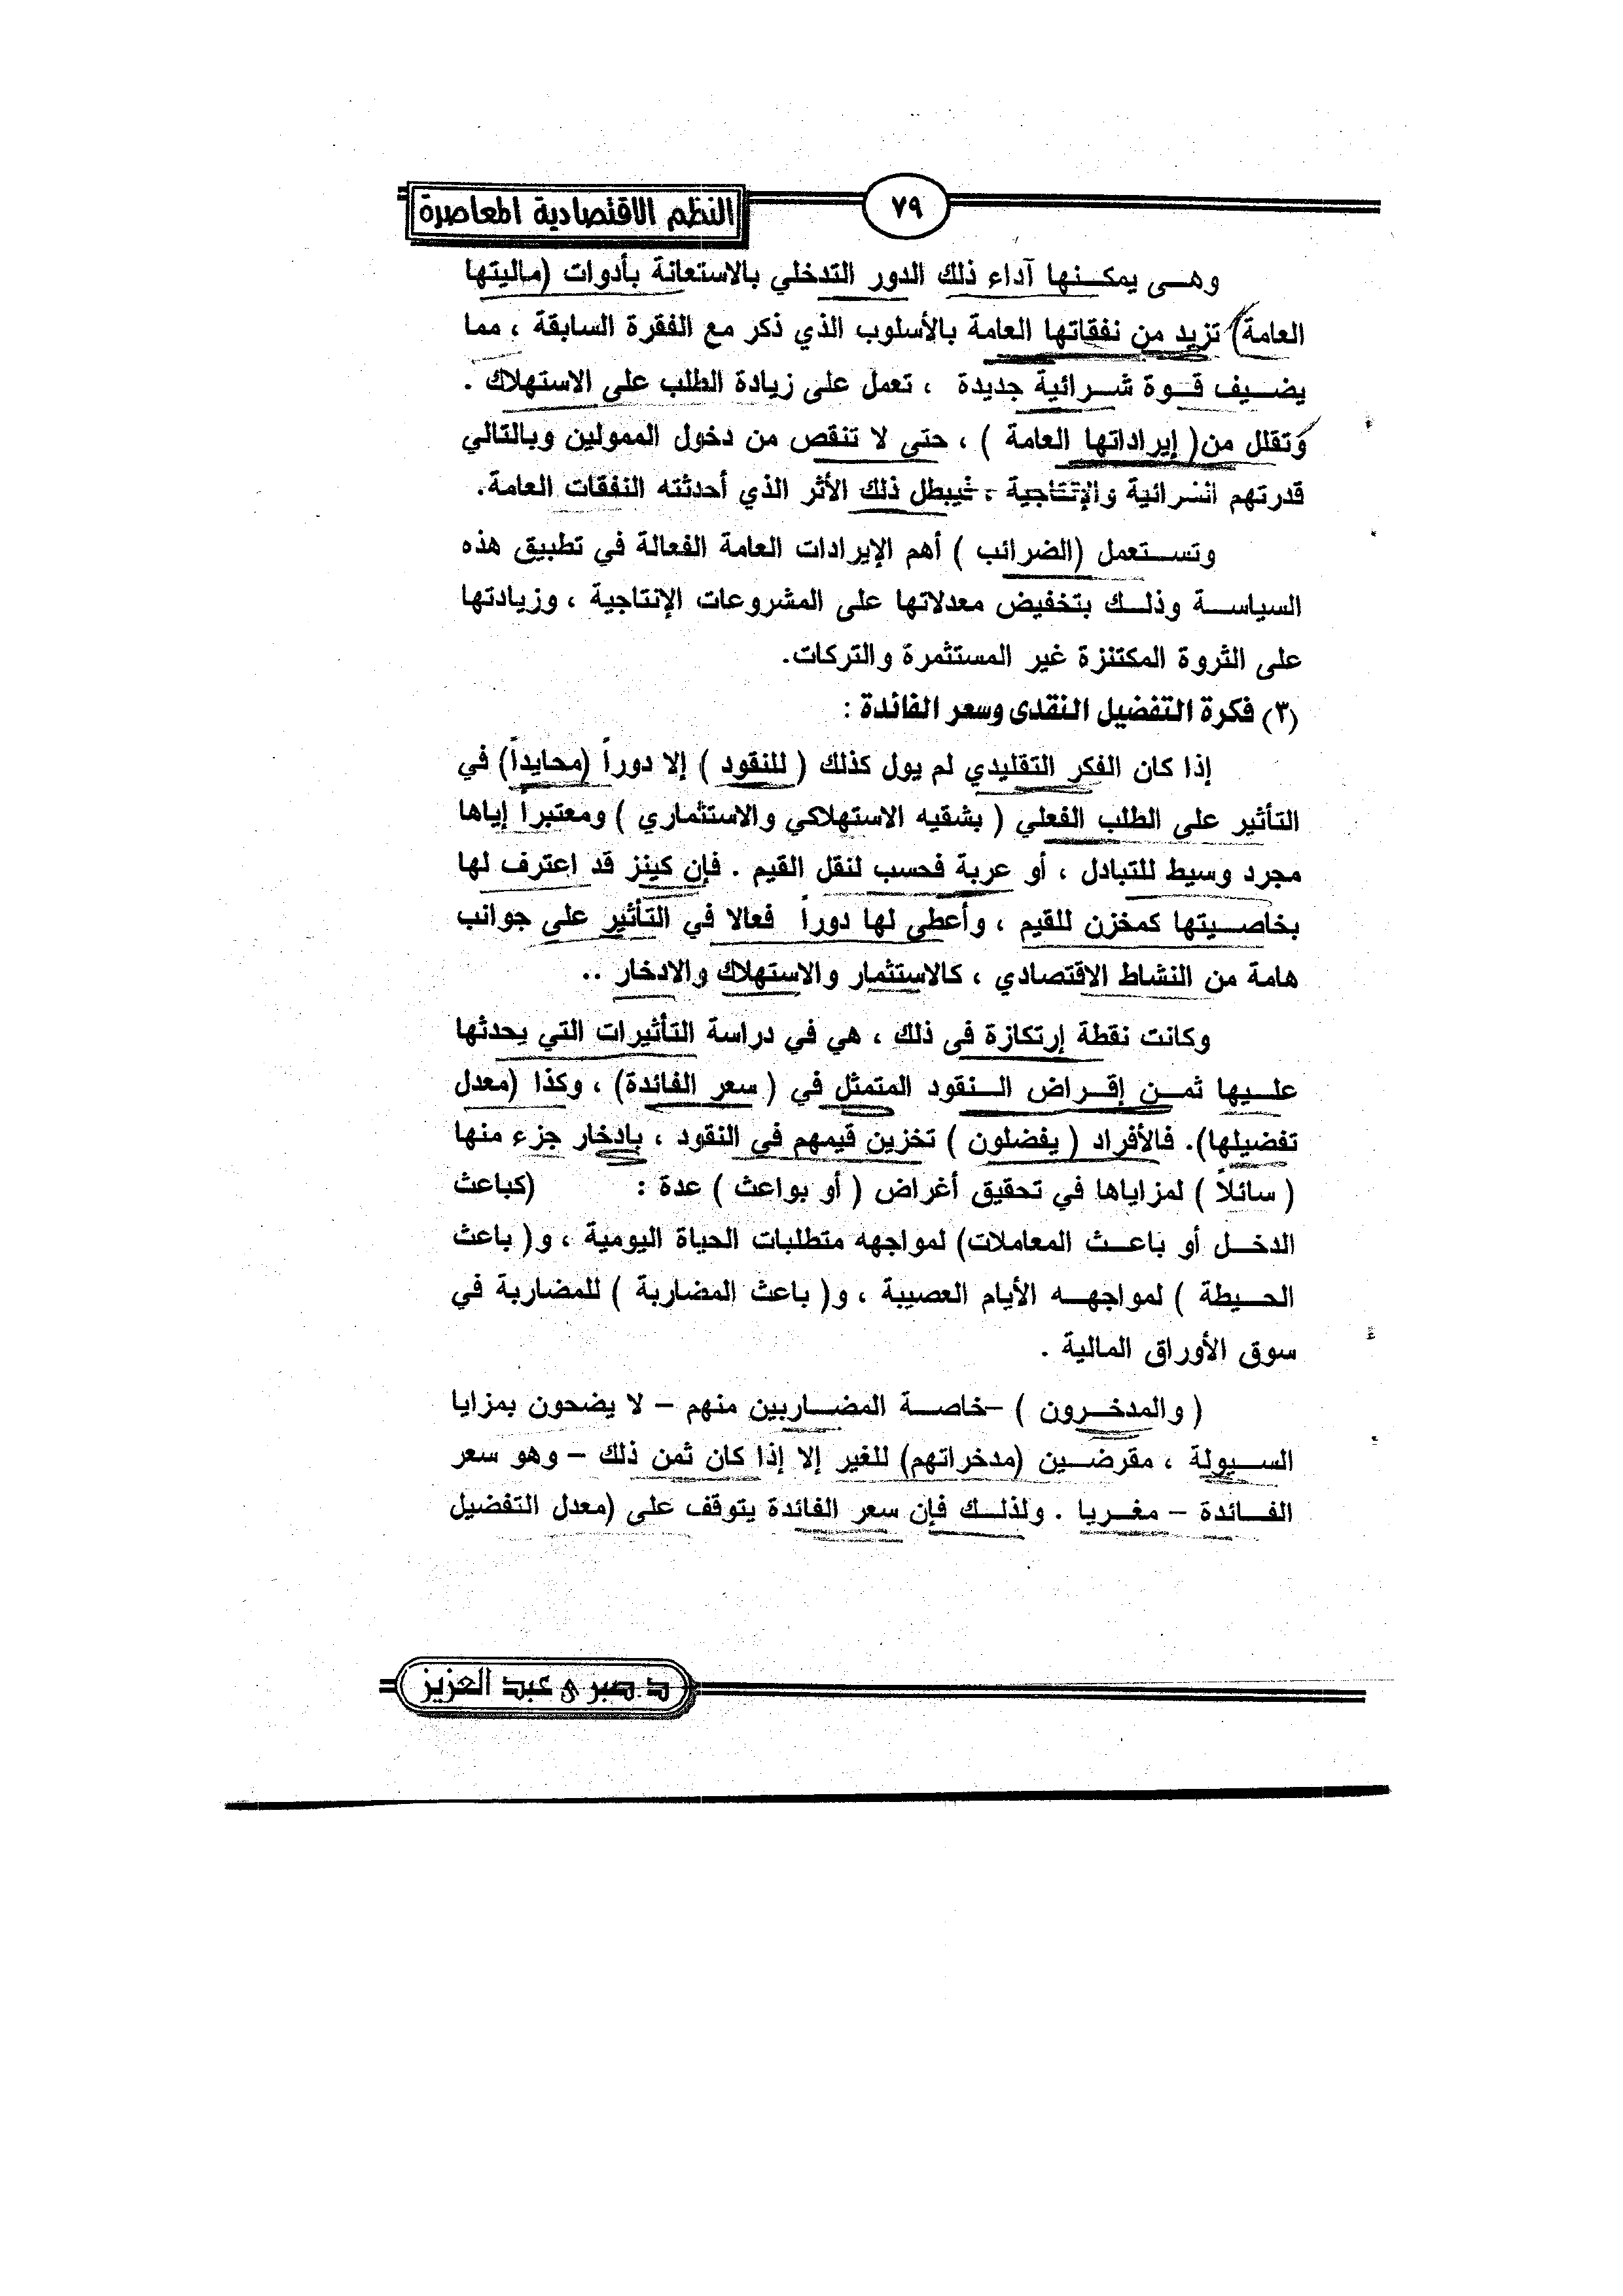 النظم الاقتصادية المعاصرة
٧٩
وهى يمكنها آداء ذلك الدور التدخلي بالاستعانة بأدوات (ماليتها
العامة) تزيد من نفقاتها العامة بالأسلوب الذي ذكر مع الفقرة السابقة ، مما
يضيف قوة شرائية جديدة ، تعمل على زيادة الطلب على الاستهلاك .
وتقلل من( إيراداتها العامة ) ، حتى لا تنقص من دخول الممولين وبالتالي
قدرتهم الشرائية والإنتاجية ، فيبطل ذلك الأثر الذي أحدثته النفقات العامة.
وتستعمل (الضرائب ) أهم الإيرادات العامة الفعالة في تطبيق هذه
السياسة وذلك بتخفيض معدلاتها على المشروعات الإنتاجية ، وزيادتها
على الثروة المكتنزة غير المستثمرة والتركات.
(٣) فكرة التفضيل النقدى وسعر الفائدة :
إذا كان الفكر التقليدي لم يول كذلك ( للنقود ) إلا دوراً (محايداً) في
التأثير على الطلب الفعلي ( بشقيه الاستهلاكي والاستثماري ) ومعتبراً إياها
مجرد وسيط للتبادل ، أو عربة فحسب لنقل القيم . فإن كينز قد اعترف لها
بخاصيتها كمخزن للقيم ، وأعطى لها دوراً فعالا في التأثير على جوانب
هامة من النشاط الاقتصادي ، كالاستثمار والاستهلاك والادخار ..
وكانت نقطة إرتكازة فى ذلك ، هي في دراسة التأثيرات التي يحدثها
عليها ثمن إقراض النقود المتمثل في ( سعر الفائدة) ، وكذا (معدل
تفضيلها). فالأفراد ( يفضلون ) تخزين قيمهم في النقود ، بادخار جزء منها
( سائلاً ) لمزاياها في تحقيق أغراض ( أو بواعث ) عدة : (كباعث
الدخل أو باعث المعاملات) لمواجهه متطلبات الحياة اليومية ، و( باعث
الحيطة ) لمواجهه الأيام العصيبة ، و( باعث المضاربة ) للمضاربة في
سوق الأوراق المالية .
( والمدخرون ) –خاصة المضاربين منهم – لا يضحون بمزايا
السيولة ، مقرضين (مدخراتهم) للغير إلا إذا كان ثمن ذلك – وهو سعر
الفائدة – مغريا . ولذلك فإن سعر الفائدة يتوقف على (معدل التفضيل
د. صبرى عبد العزيز